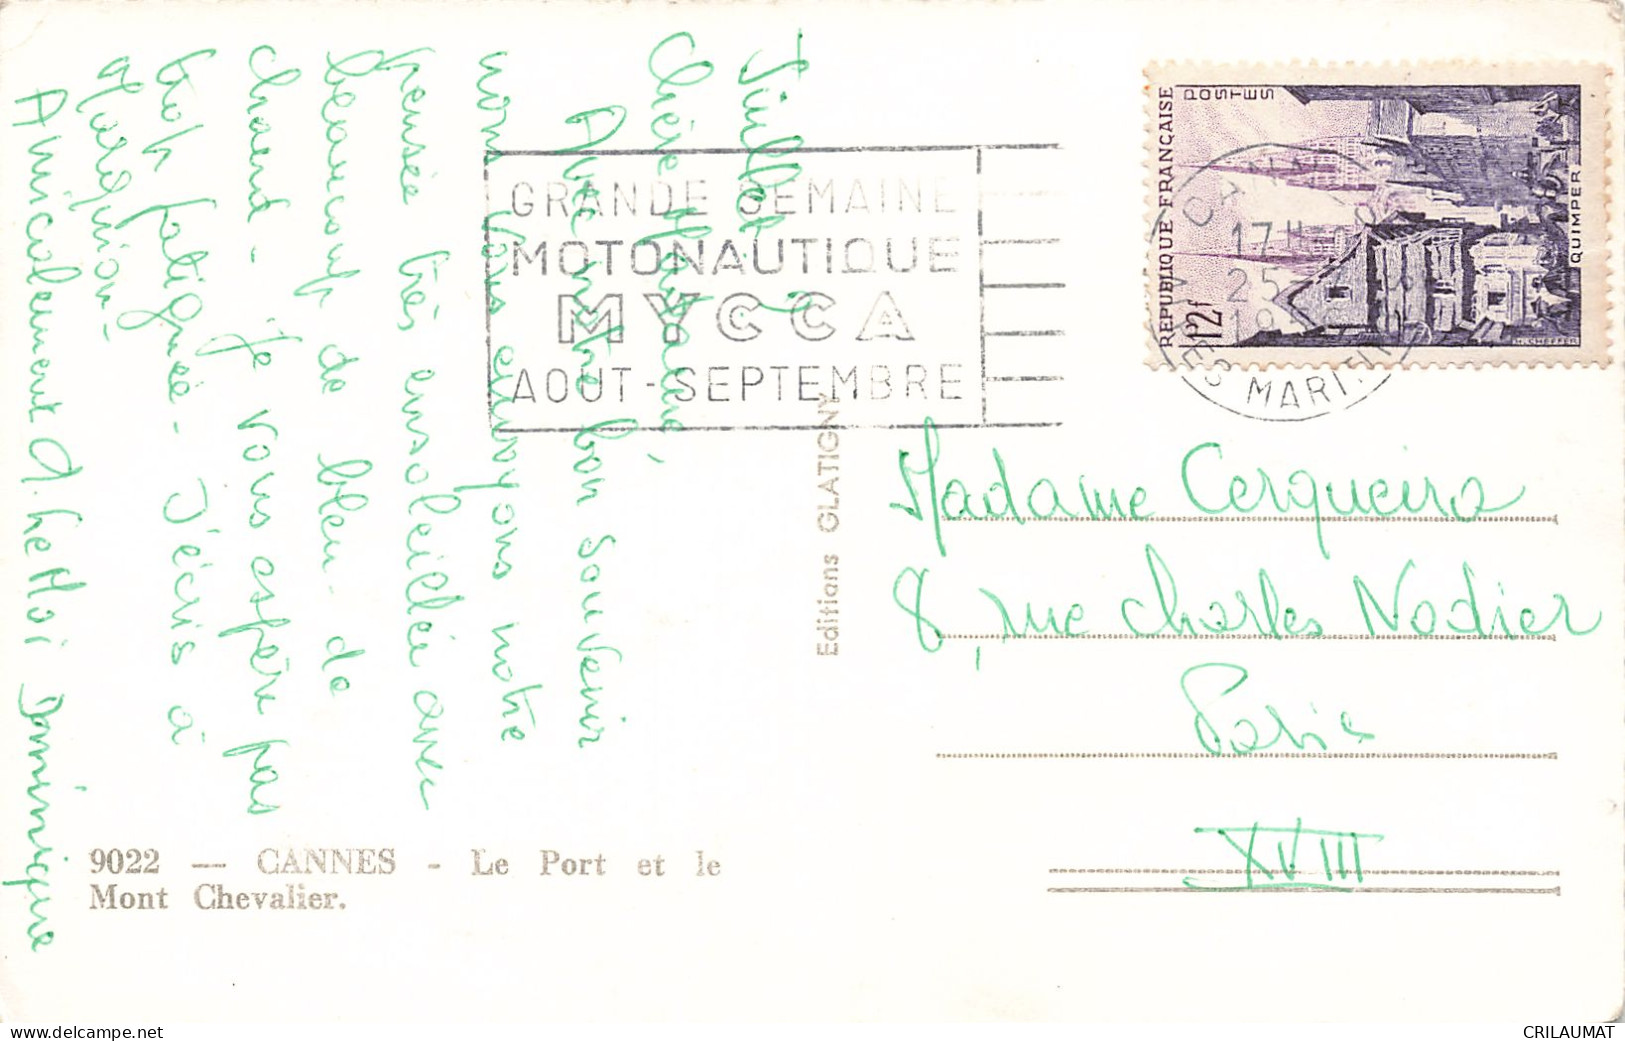 Juillet
Chère Madame,
Avec notre bon souvenir
nous vous envoyons notre
pensée très ensoleillée avec
beaucoup de bleu - de
chaud - Je vous espère pas
trop fatiguée - J'écris à
Amicalement A. Le Moi Dominique
GRANDE SEMAINE
MOTONAUTIQUE
MYCCA
AOUT - SEPTEMBRE
REPUBLIQUE FRANÇAISE
POSTES
12f
QUIMPER
H.CHEFFER
CANNES
17H
25
19
ALPES MARITIMES
Editions GLATIGNY
Madame Cerqueira
8, rue Charles Nodier
Paris
XVIII
9022 — CANNES - Le Port et le
Mont Chevalier.
CRILAUMAT